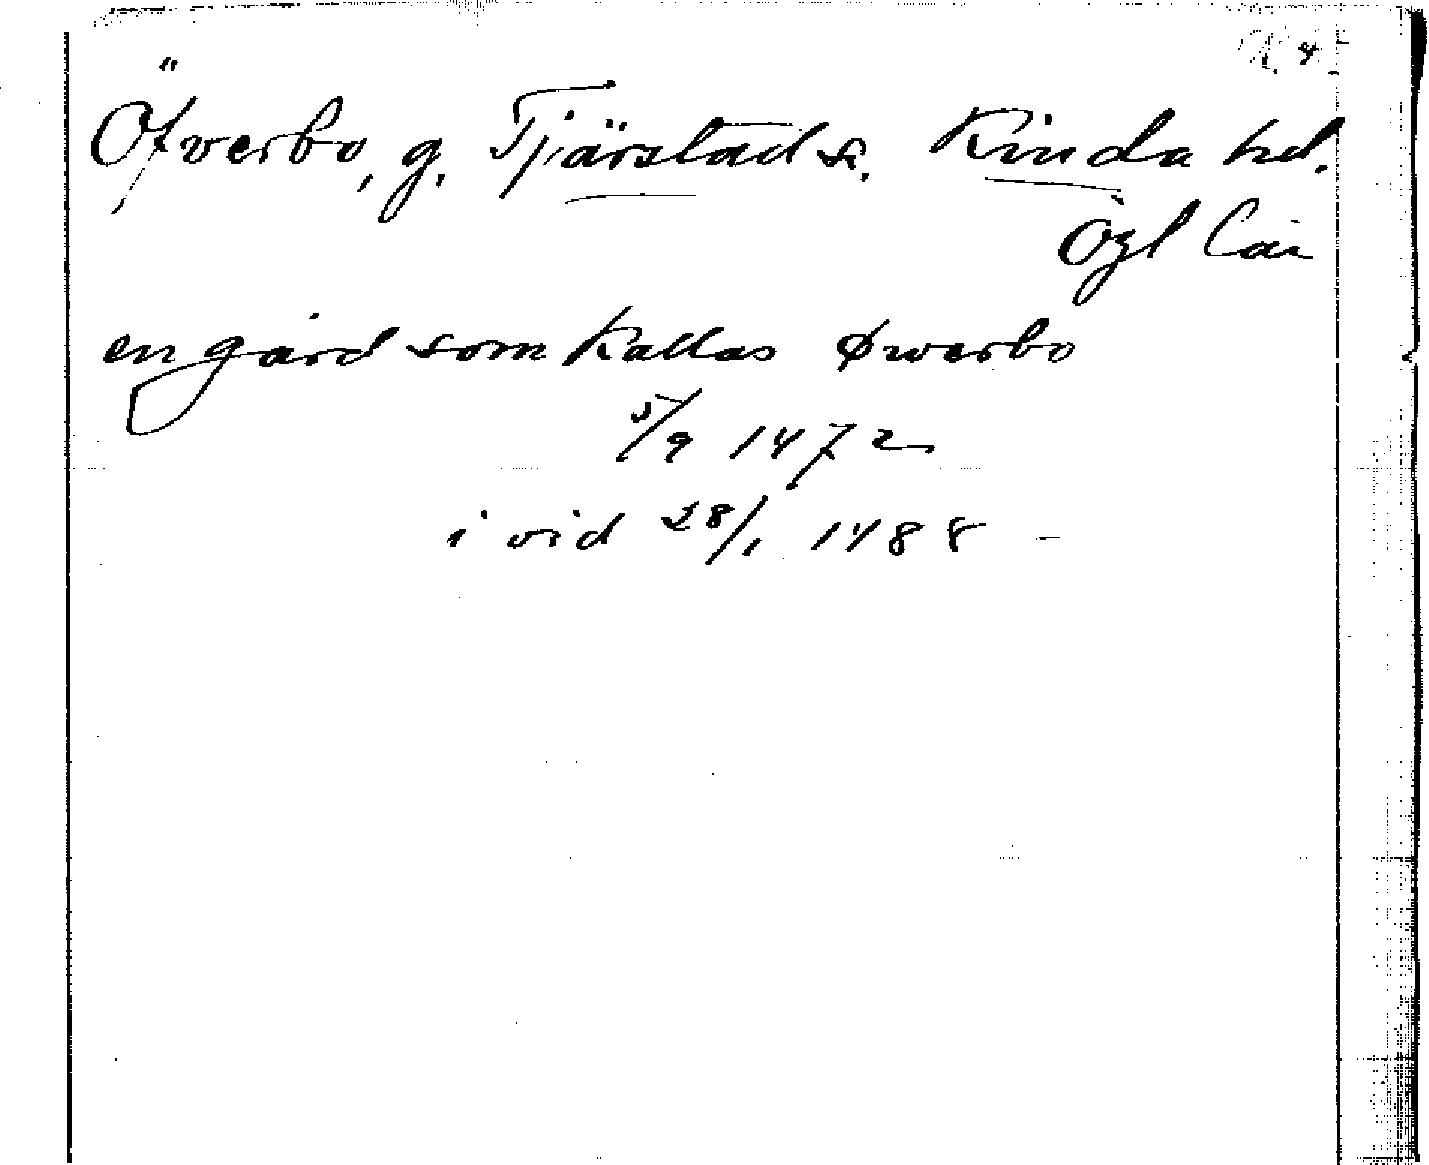 4
Öfverbo, g. Tjärstad s. Kinda hd.
Ögl län
en gård som kallas Øwerbo
5/9 1472
i vid 28/1 1488 -